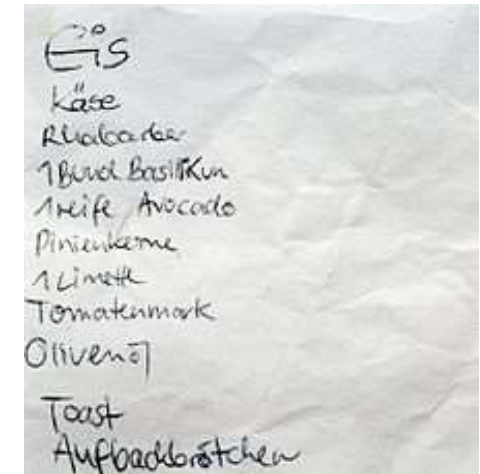 Eis
Käse
Rhabarber
1 Bund Basilikum
1 reife Avocado
Pinienkerne
1 Limette
Tomatenmark
Olivenöl
Toast
Aufbackbrötchen